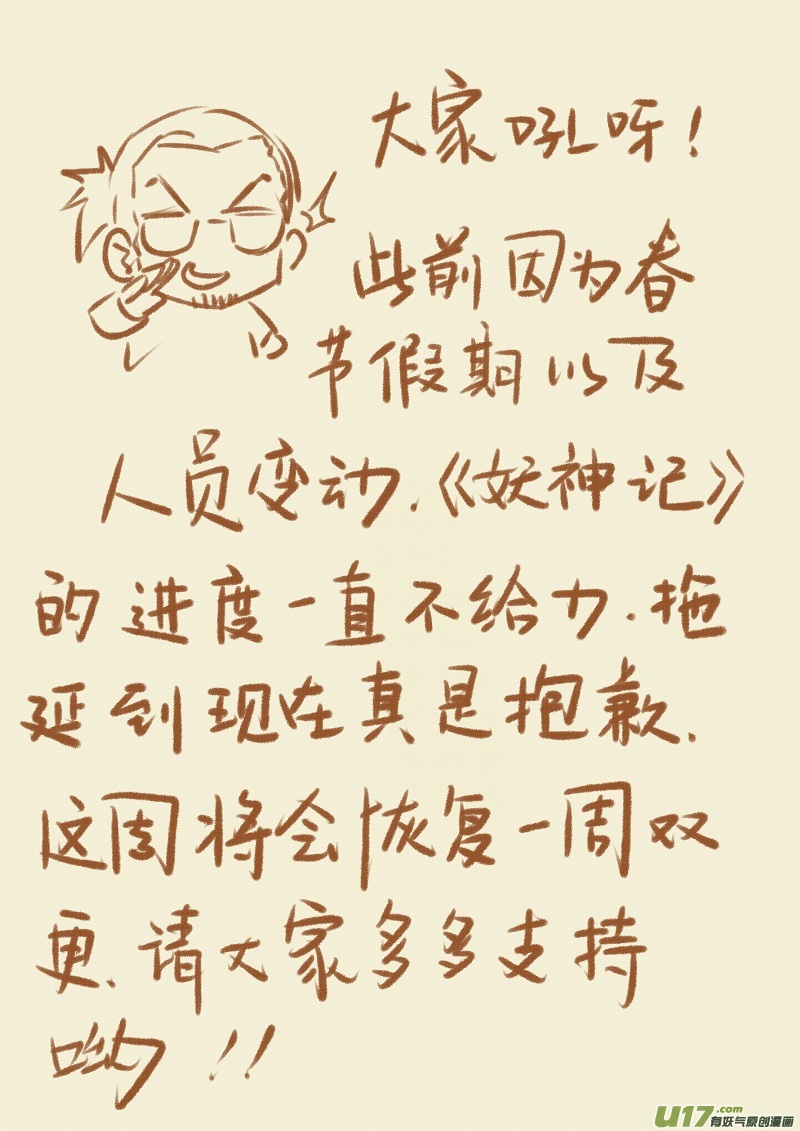 大家吼呀！
此前因为春
节假期以及
人员变动.《妖神记》
的进度一直不给力.拖
延到现在真是抱歉.
这周将会恢复一周双
更.请大家多多支持
呦!!
U17.com
有妖气原创漫画